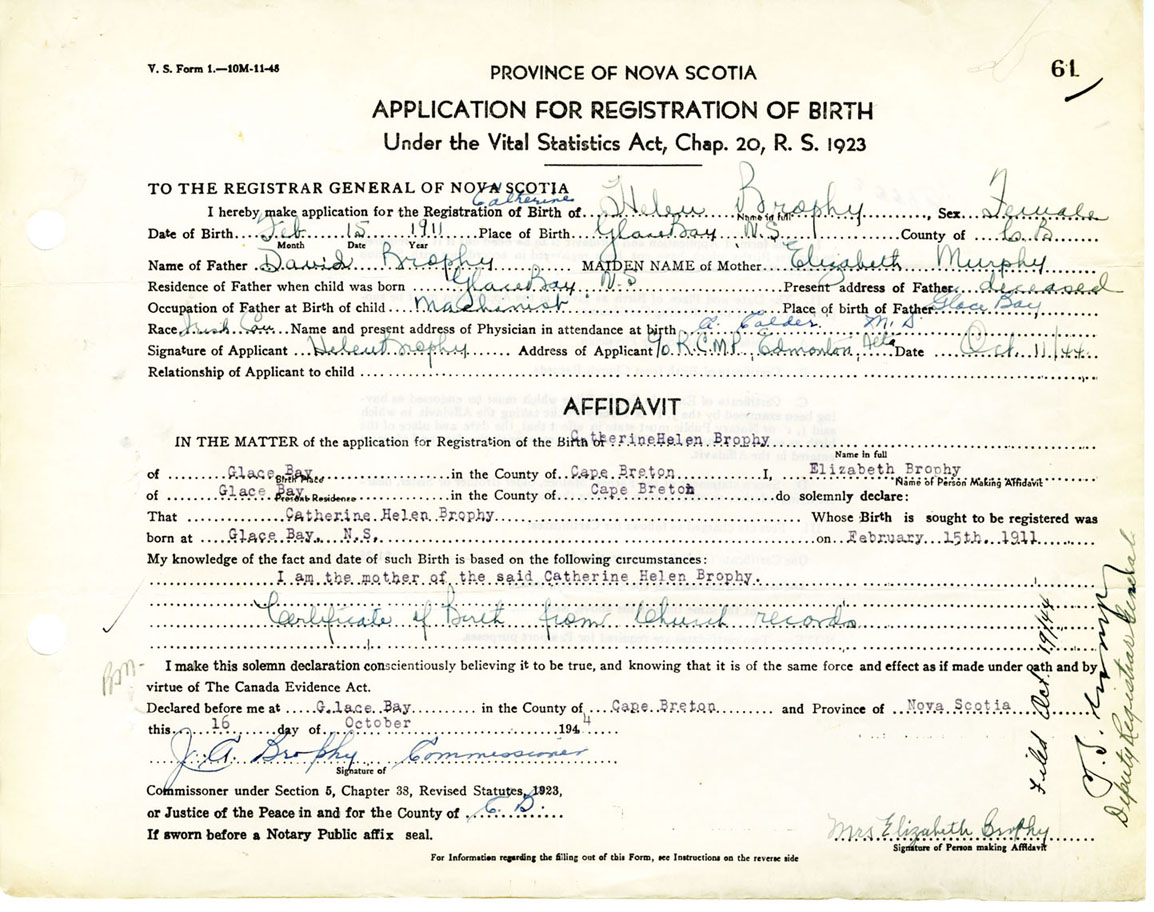 V. S. Form 1.—10M-11-48
61
PROVINCE OF NOVA SCOTIA
APPLICATION FOR REGISTRATION OF BIRTH
Under the Vital Statistics Act, Chap. 20, R. S. 1923
TO THE REGISTRAR GENERAL OF NOVA SCOTIA
I hereby make application for the Registration of Birth of Catherine Helen Brophy, Sex Female
Name in full
Date of Birth Feb 15 1911 Place of Birth Glace Bay N.S. County of C.B
Month Date Year
Name of Father David Brophy MAIDEN NAME of Mother Elizabeth Murphy
Residence of Father when child was born Glace Bay N.S Present address of Father deceased
Occupation of Father at Birth of child Machinist Place of birth of Father Glace Bay
Race Irish Can Name and present address of Physician in attendance at birth A. Calder. M.D.
Signature of Applicant Helen Brophy Address of Applicant c/o R.C.M.P., Edmonton, Alta Date Oct. 11/44
Relationship of Applicant to child
AFFIDAVIT
IN THE MATTER of the application for Registration of the Birth of Catherine Helen Brophy
Name in full
of Glace Bay in the County of Cape Breton I, Elizabeth Brophy
Birth Place Name of Person Making Affidavit
of Glace Bay in the County of Cape Breton do solemnly declare:
Present Residence
That Catherine Helen Brophy Whose Birth is sought to be registered was
born at Glace Bay, N.S. on February 15th, 1911
My knowledge of the fact and date of such Birth is based on the following circumstances:
I am the mother of the said Catherine Helen Brophy.
Certificate of Birth from Church records
I make this solemn declaration conscientiously believing it to be true, and knowing that it is of the same force and effect as if made under oath and by
virtue of The Canada Evidence Act.
Declared before me at G.lace Bay in the County of Cape Breton and Province of Nova Scotia
this 16 day of October 194 4
J. A. Brophy Commissioner
Signature of
Commissoner under Section 5, Chapter 38, Revised Statutes, 1923,
or Justice of the Peace in and for the County of C. B.
If sworn before a Notary Public affix seal.
Mrs Elizabeth Brophy
Signature of Person making Affidavit
For Information regarding the filling out of this Form, see Instructions on the reverse side
Filed Oct. 19/44
Deputy Registrar General